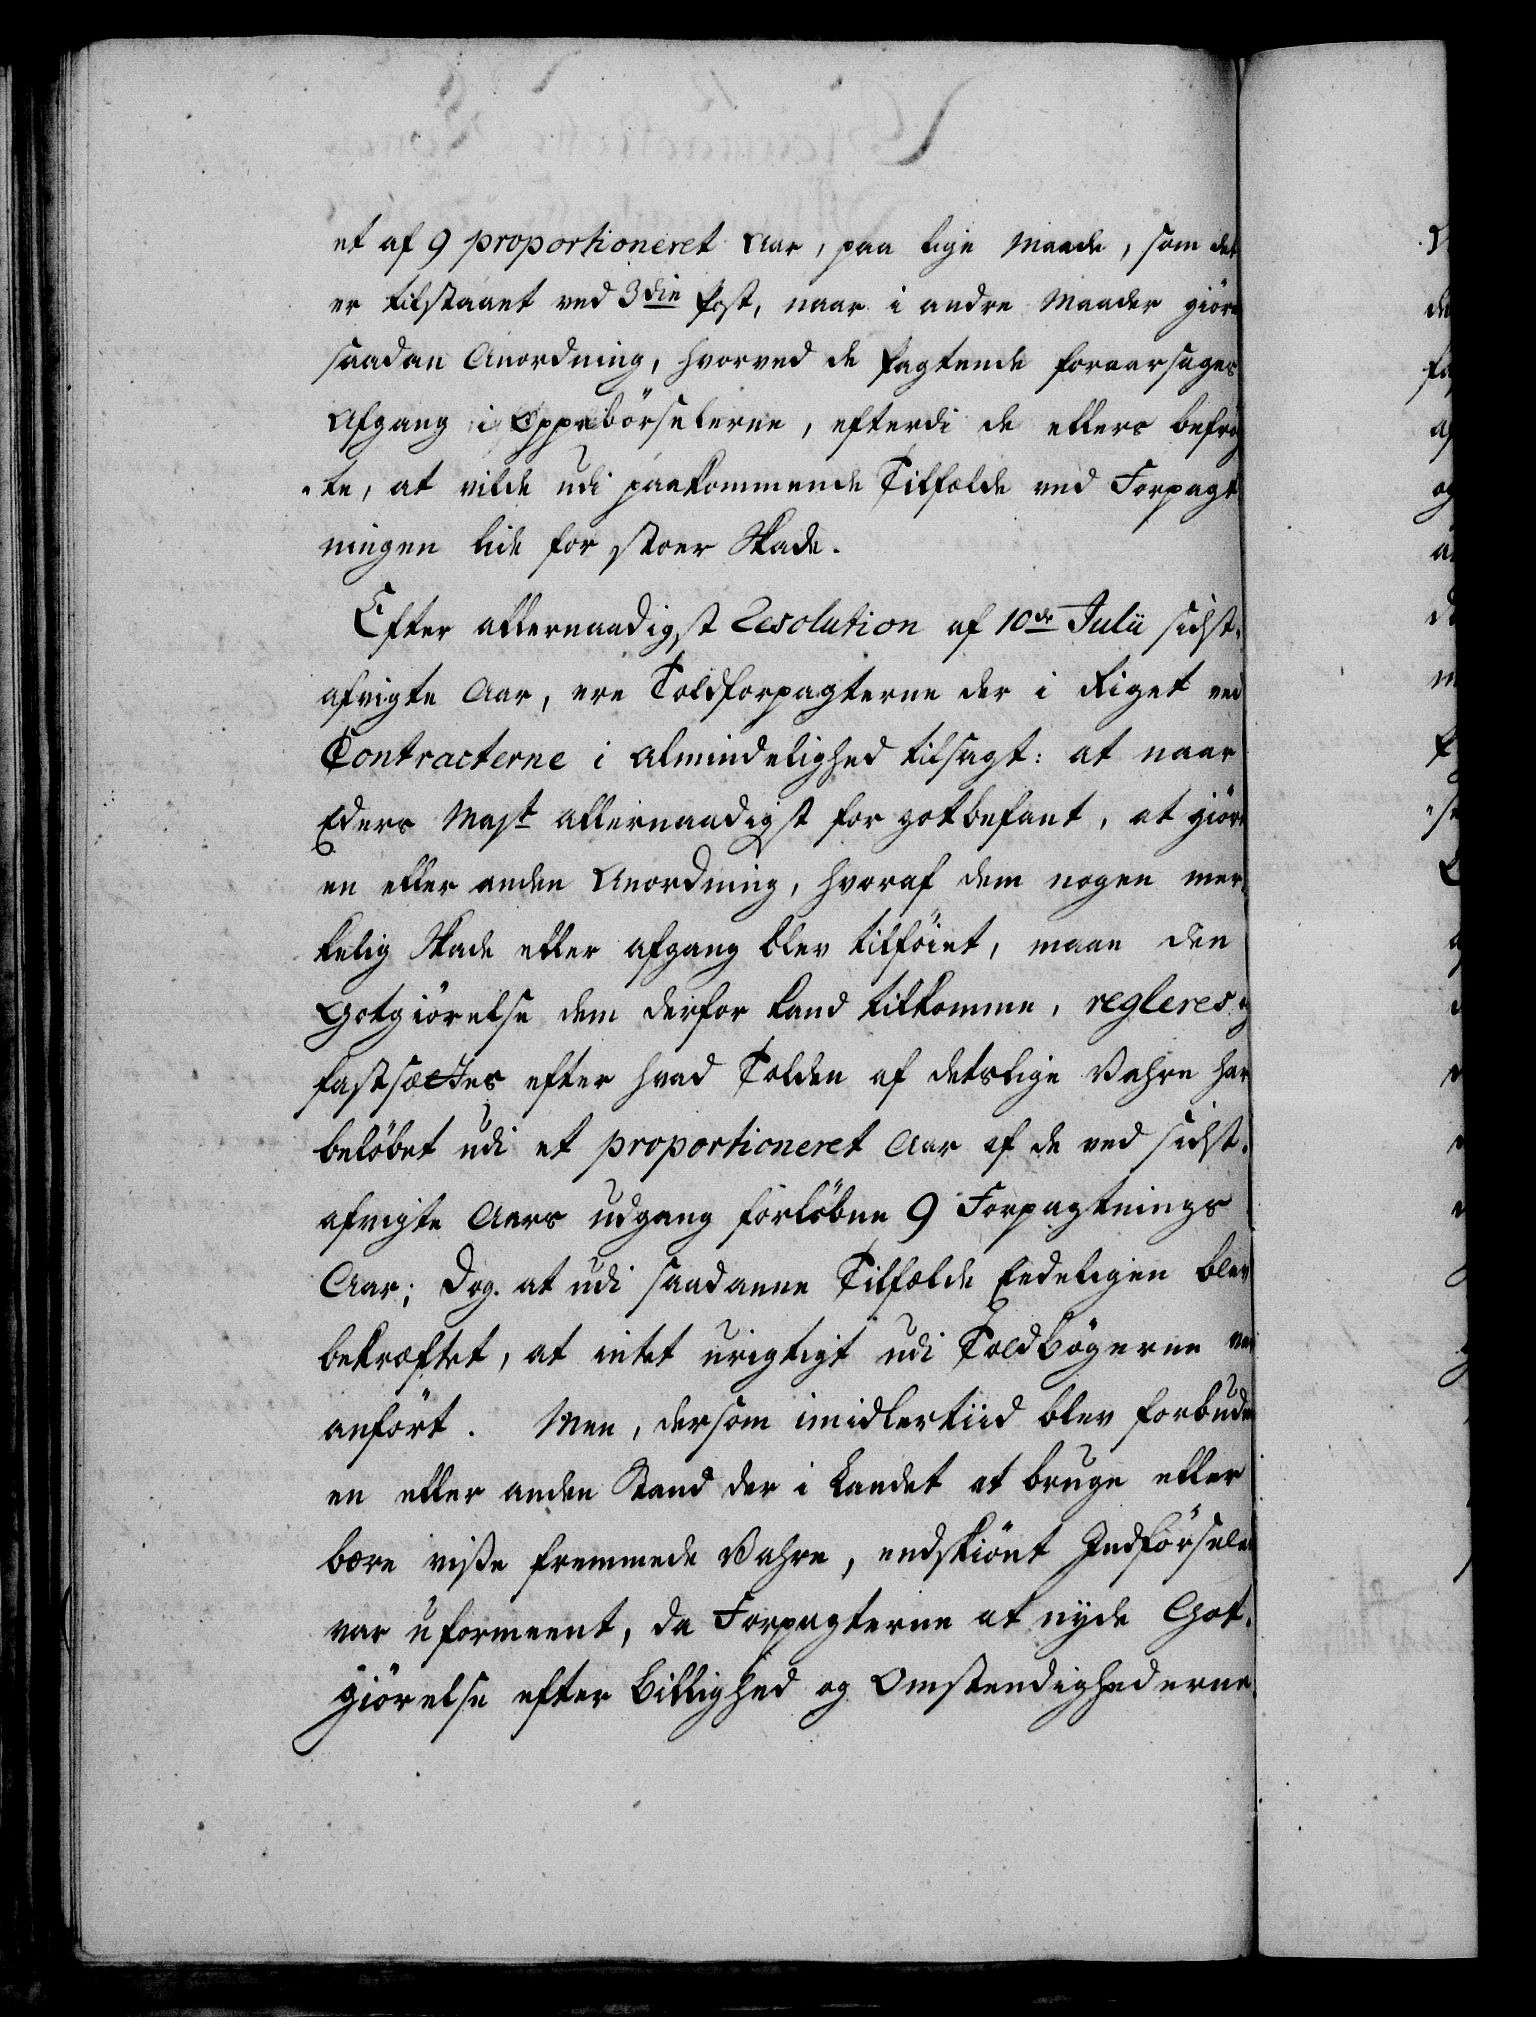 et af 9 proportioneret Aar, paa lige Maade, som det
er tilstaaet ved 3die Post, naar i andre Maader giöres
saadan Anordning, hvorved de Pagtende foraarsages
Afgang i Oppebörselerne, efterdi de ellers befrög
te, at vilde udi paakommende Tilfælde ved Forpagt
ningen lide for stoer Skade.
Efter allernaadigst Resolution af 10de Julii sidst
afvigte Aar, ere Toldforpagterne der i Riget ved
Contracterne i Almindelighed tilsagt: at naar
Eders Mayt allernaadigst for got befant, at giöre
en eller anden Anordning, hvoraf dem nogen mer
kelig Skade eller afgang blev tilföiet, maae den
Godtgiörelse dem derfor kand tilkomme, regleres og
fastsættes efter hvad Tolden af deslige Vahre har
belöbet udi et proportioneret Aar af de ved sidst
afvigte Aars udgang forlöbne 9 Forpagtnings
Aar; Dog at udi saadanne Tilfælde Eedeligen blev
bekræftet, at intet urigtigt udi Toldbögerne var
anfört. Men, dersom imidlertiid blev forbuden
en eller anden Stand der i Landet at bruge eller
bære visse fremmede Vahre, endskiönt Indförselen
var uformeent, da Forpagterne at nyde Got
giörelse efter Billighed og Omstændighederne.